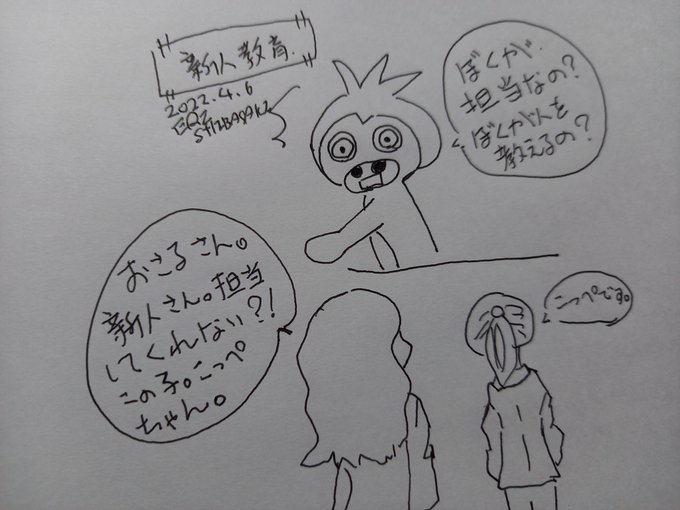 新人教育.
2022.4.6
ぼくが.
担当なの?
ぼくがんを
教えるの?
おさるさん。
新人さん。担当
してくれない?!
この子。こっぺ
ちゃん。
こっペです。